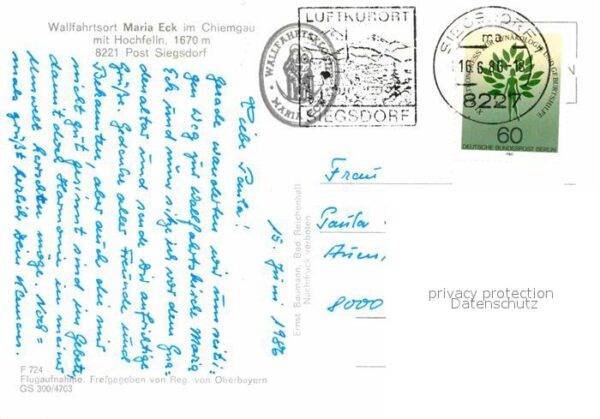 Wallfahrtsort Maria Eck im Chiemgau
mit Hochfelln, 1670 m
8221 Post Siegsdorf
WALLFAHRTSKIRCHE
MARIA ECK
LUFTKURORT
SIEGSDORF
SIEGSDORF
ma
16.6.86-18
8227
UND GEBURTSHILFE
60
DEUTSCHE BUNDESPOST BERLIN
1985
15. Juni 1986
Liebe Paula!
Gerade wanderten wir uns seiti-
gen Weg zur Wallfahrtskirche Maria
Eck und nun sitz ich vor dem Gna-
denaltar und sende Dir aufrichtige
Grüße. Gedenke aller Freunde und
Bekannten, aber auch die mir
nicht gut gesinnt sind im Gebete,
damit doch Harmonie in meiner
Umwelt herrschen möge. Noch=
mals grüßt herzlich Dein Klemens.
Ernst Baumann, Bad Reichenhall
Nachdruck verboten
Frau
Paula
Auen,
8000
privacy protection
Datenschutz
F 724
Flugaufnahme. Freigegeben von Reg. von Oberbayern
GS 300/4703